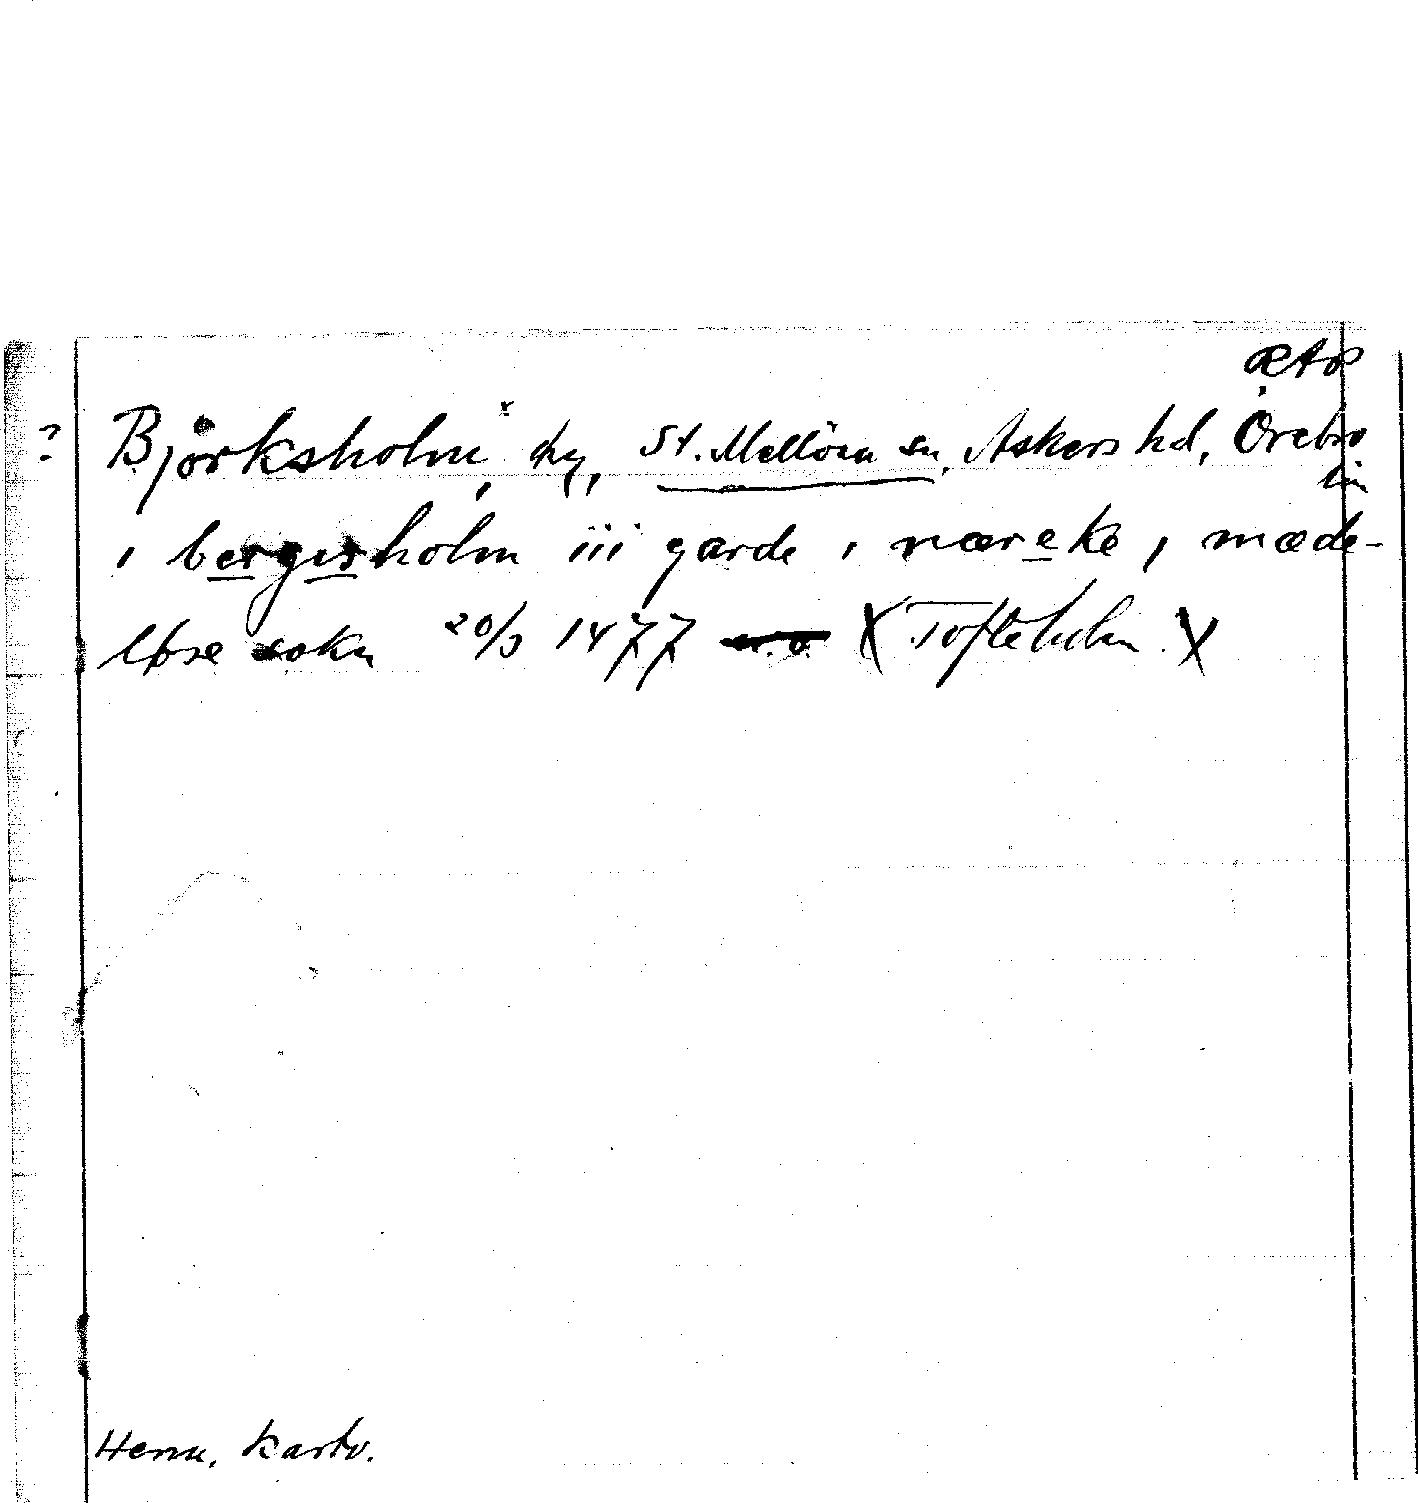 ? Björksholm, by, St. Mellösa sn, Askers hd, Örebro
län
i bergisholm iii garde i næreke, mæde-
løse sokn 20/3 1477 X Tofteholm X
Henn. kartv.